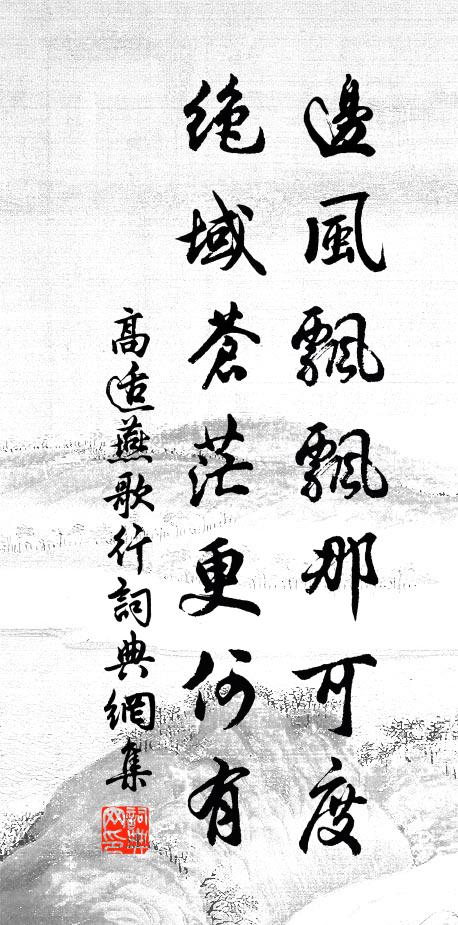 邊風飄飄那可度
絶域蒼茫更何有
高适燕歌行詞典網集